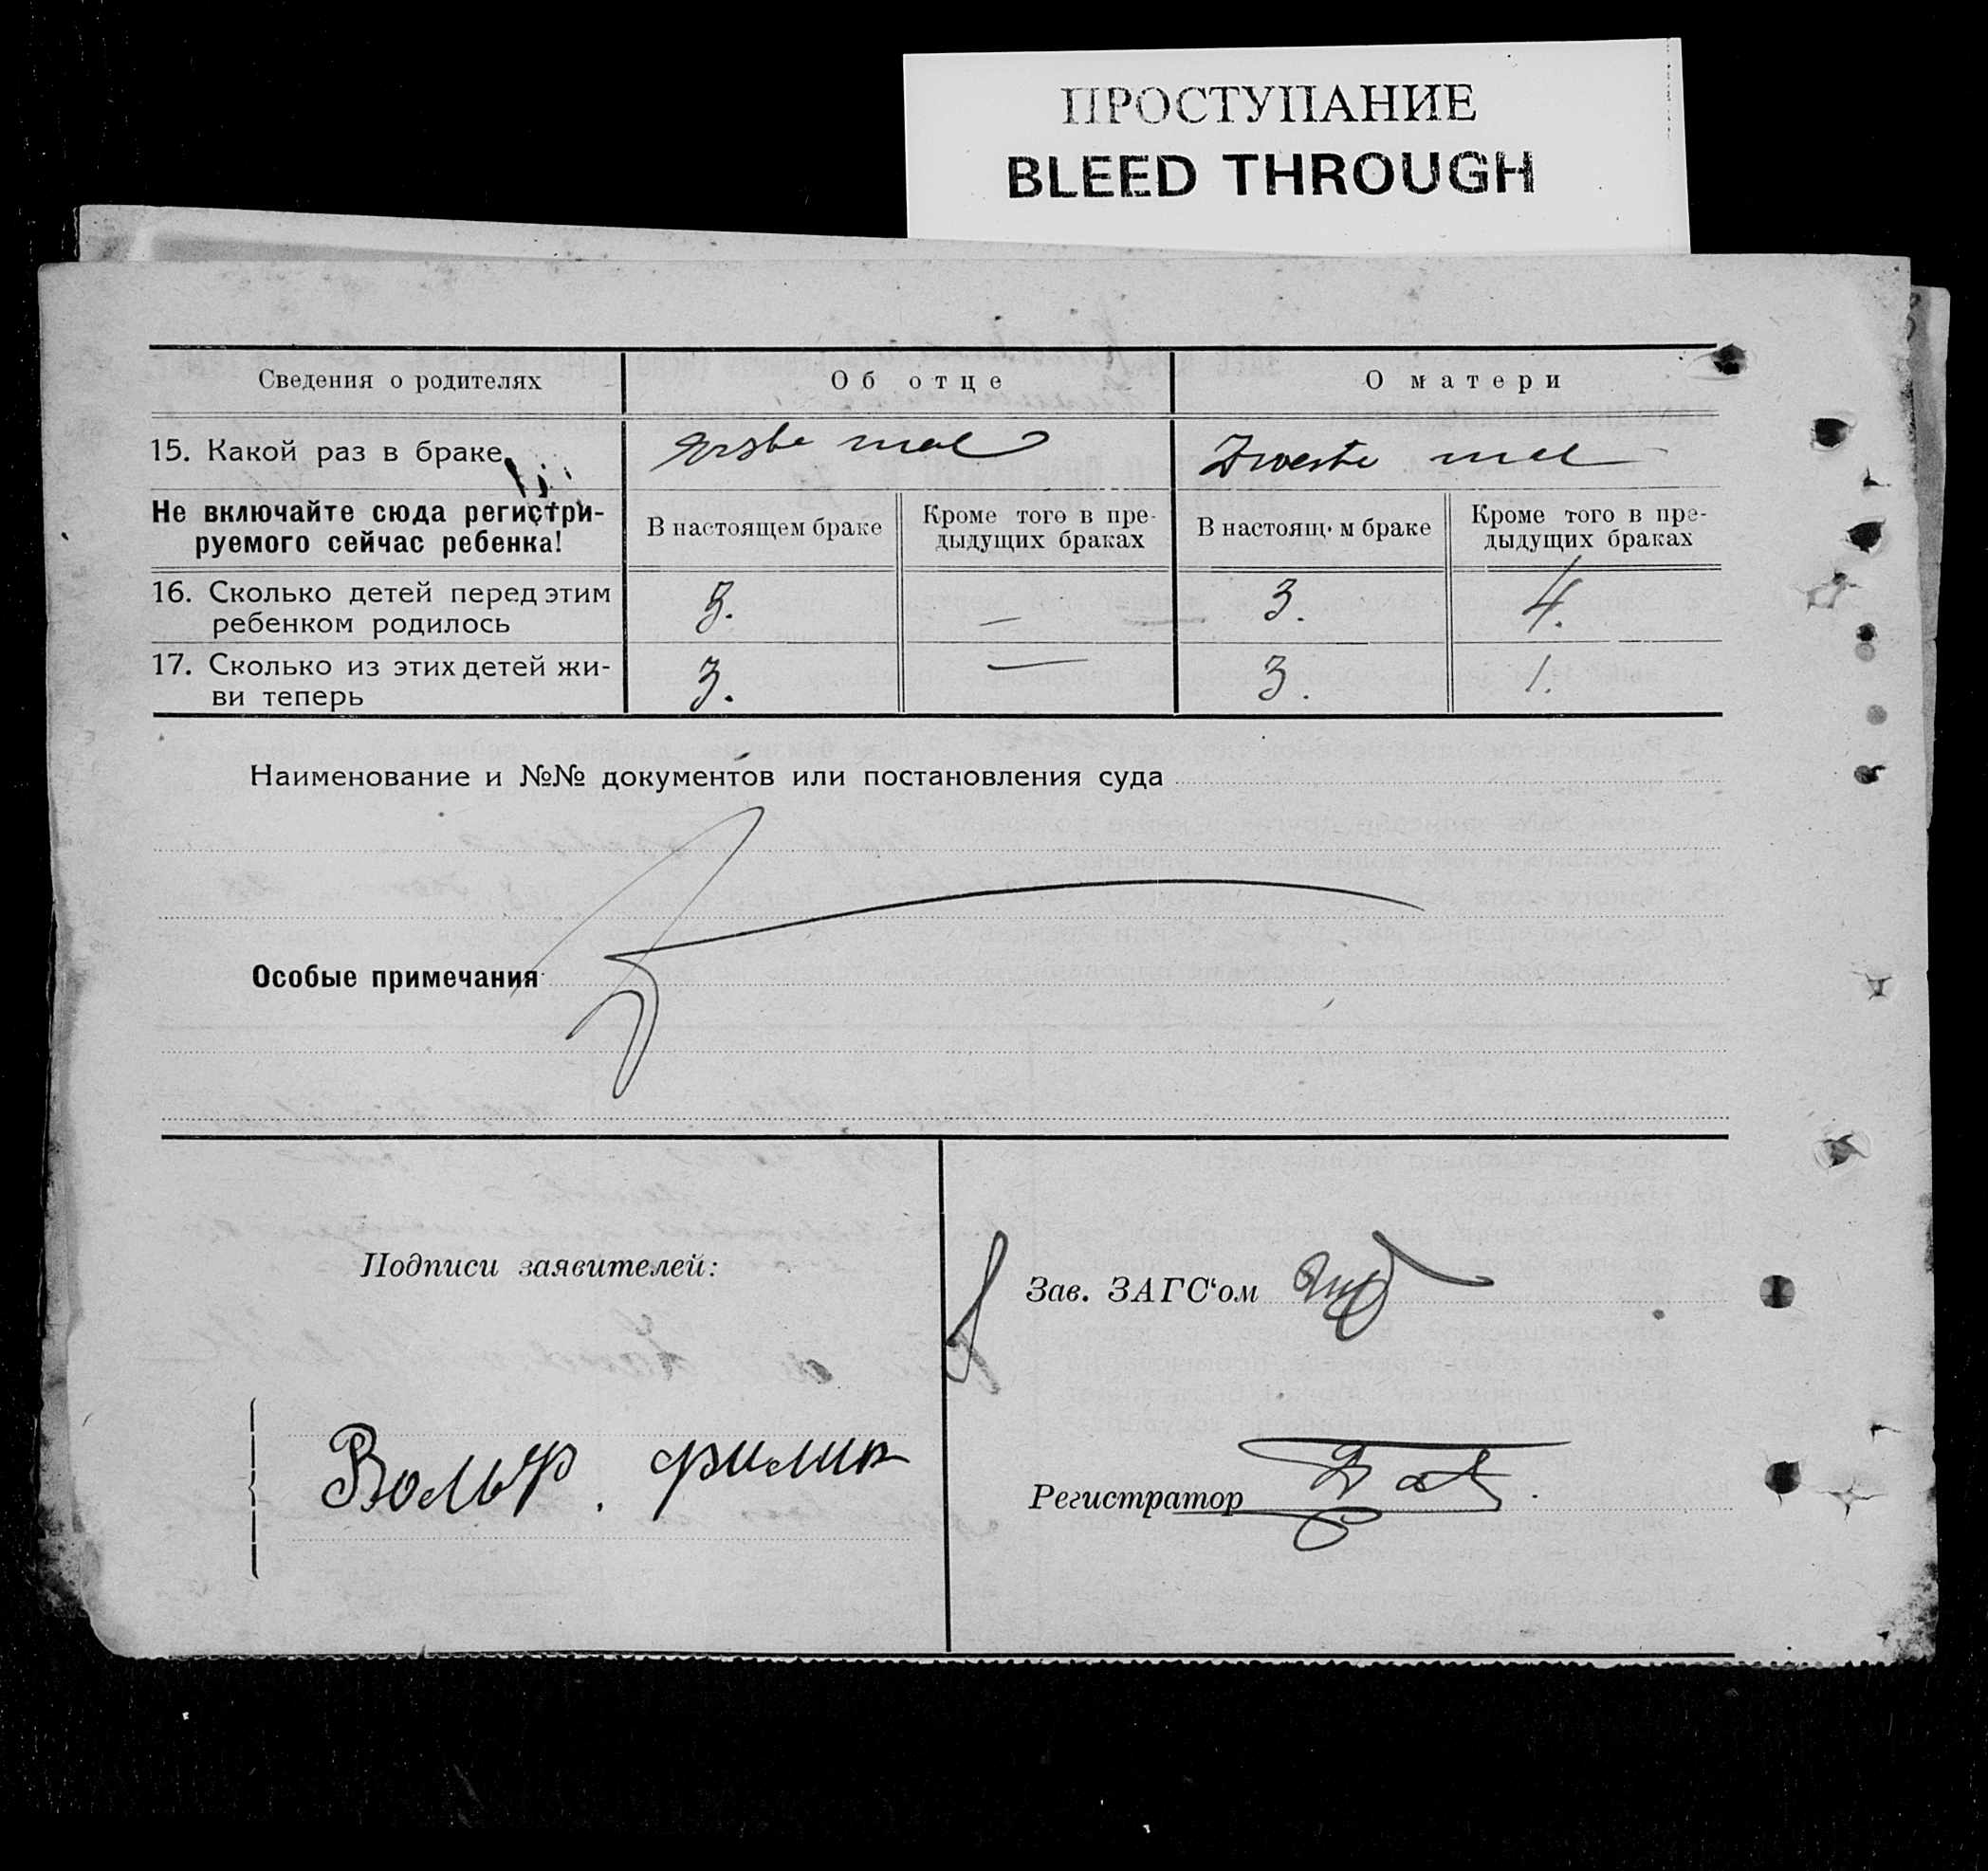 ПРОСТУПАНИЕ
BLEED THROUGH
Сведения о родителях
Об отце
О матери
15. Какой раз в браке
Erste mal
Zweite mal
Не включайте сюда регистри-
руемого сейчас ребенка!
В настоящем браке
Кроме того в пре-
дыдущих браках
В настоящ м браке
Кроме того в пре-
дыдущих браках
16. Сколько детей перед этим
ребенком родилось
3.
—
3.
4.
17. Сколько из этих детей жи-
ви теперь
3.
—
3.
1.
Наименование и №№ документов или постановления суда
Особые примечания
Подписи заявителей:
Зав. ЗАГС‘ом
Вольф. филип
Регистратор